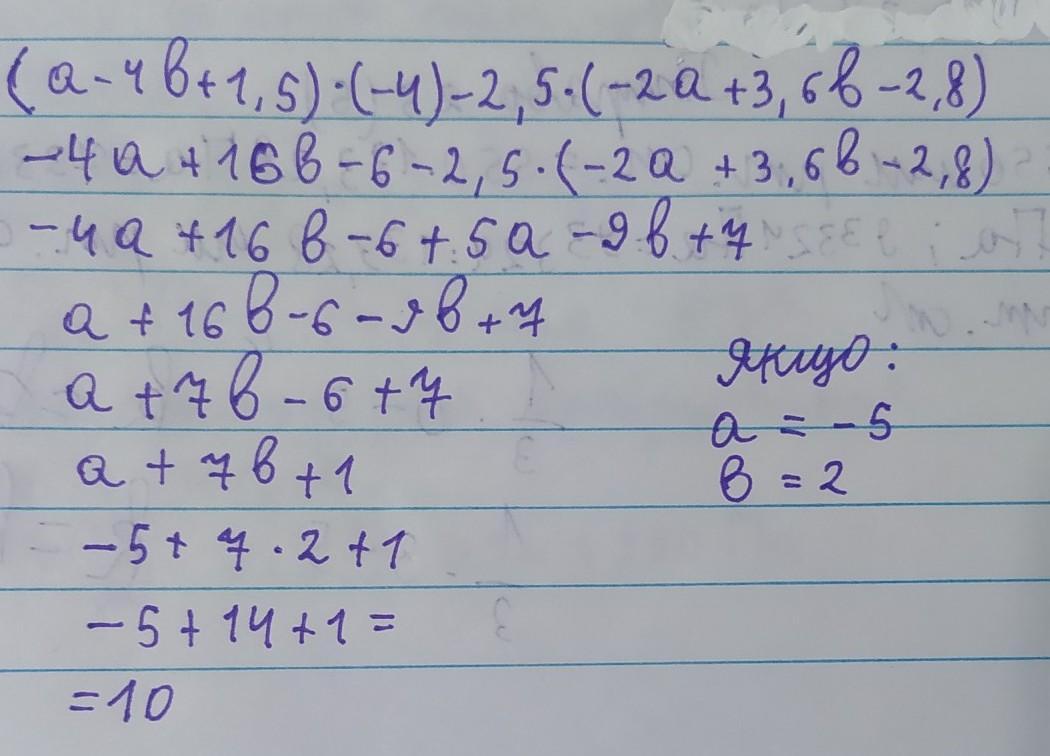 (a-4b+1,5)·(-4)-2,5·(-2a+3,6b-2,8)
-4a+16b-6-2,5·(-2a+3,6b-2,8)
-4a+16b-6+5a-9b+7
a+16b-6-9b+7
a+7b-6+7
a+7b+1
-5+7·2+1
-5+14+1=
=10
якщо:
a = -5
b = 2